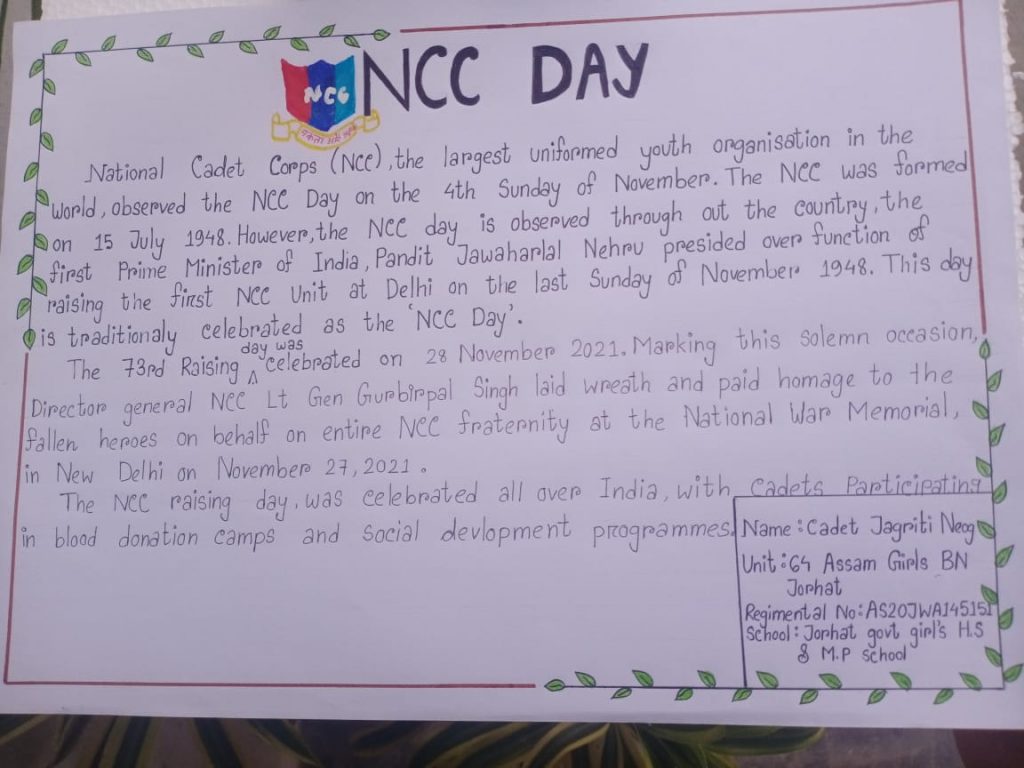 NCC DAY
NCC
National Cadet Corps (NCC), the largest uniformed youth organisation in the
World, observed the NCC Day on the 4th Sunday of November. The NCC was formed
on 15 July 1948. However, the NCC day is observed through out the country, the
first Prime Minister of India, Pandit Jawaharlal Nehru presided over function of
raising the first NCC Unit at Delhi on the last Sunday of November 1948. This day
is traditionaly celebrated as the 'NCC Day'.
The 73rd Raising day was celebrated on 28 November 2021. Marking this solemn occasion,
Director general NCC Lt Gen Gurbirpal Singh laid wreath and paid homage to the
fallen heroes on behalf on entire NCC fraternity at the National War Memorial,
in New Delhi on November 27, 2021.
The NCC raising day, was celebrated all over India, with cadets Participating
in blood donation camps and social devlopment programmes.
Name : Cadet Jagriti Neog
Unit : 64 Assam Girls BN
Jorhat
Regimental No : AS20JWA145151
School : Jorhat govt girl's H.S
& M.P school